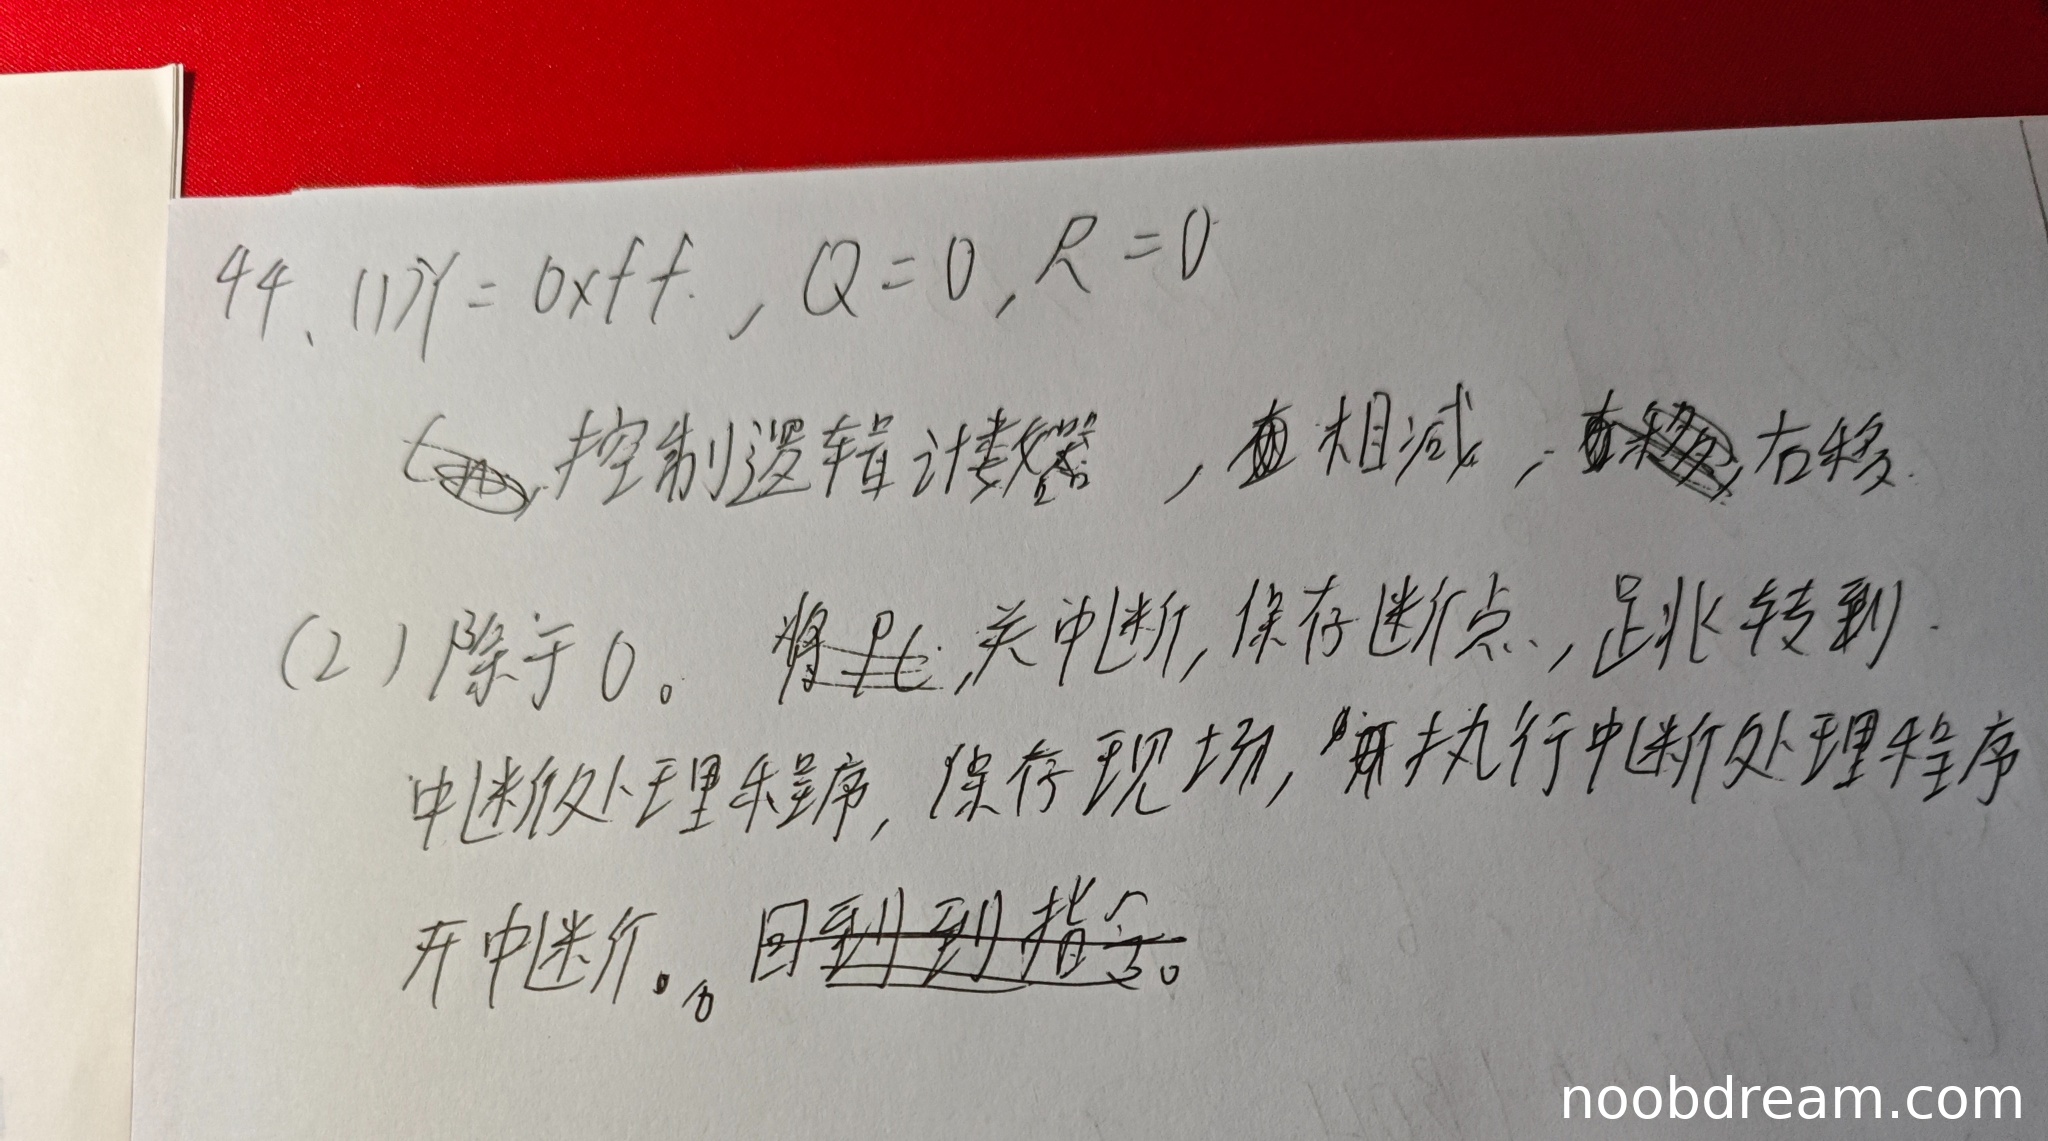 44、(1) Y = 0xff. , Q = 0 , R = 0
控制逻辑计数器 , 相减 , 右移.
(2) 除于0。 将PC , 关中断, 保存断点. , 转到.
中断处理程序, 保存现场, 执行中断处理程序
开中断。 回到到指令。
noobdream.com